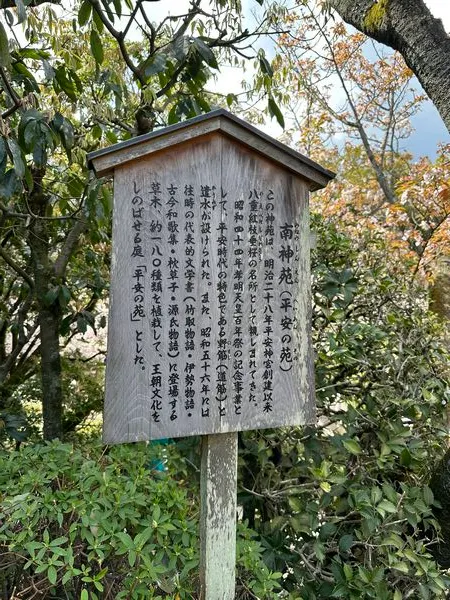 南神苑（平安の苑）
この神苑は、明治二十八年平安神宮創建以来
八重紅枝垂桜の名所として親しまれてきた。
昭和四十四年孝明天皇百年祭の記念事業と
して、平安時代の特色である野筋（道筋）と
遣水が設けられた。また、昭和五十六年には
往時の代表的文学書（竹取物語・伊勢物語・
古今和歌集・枕草子・源氏物語）に登場する
草木、約一八〇種類を植栽して、王朝文化を
しのばせる庭「平安の苑」とした。